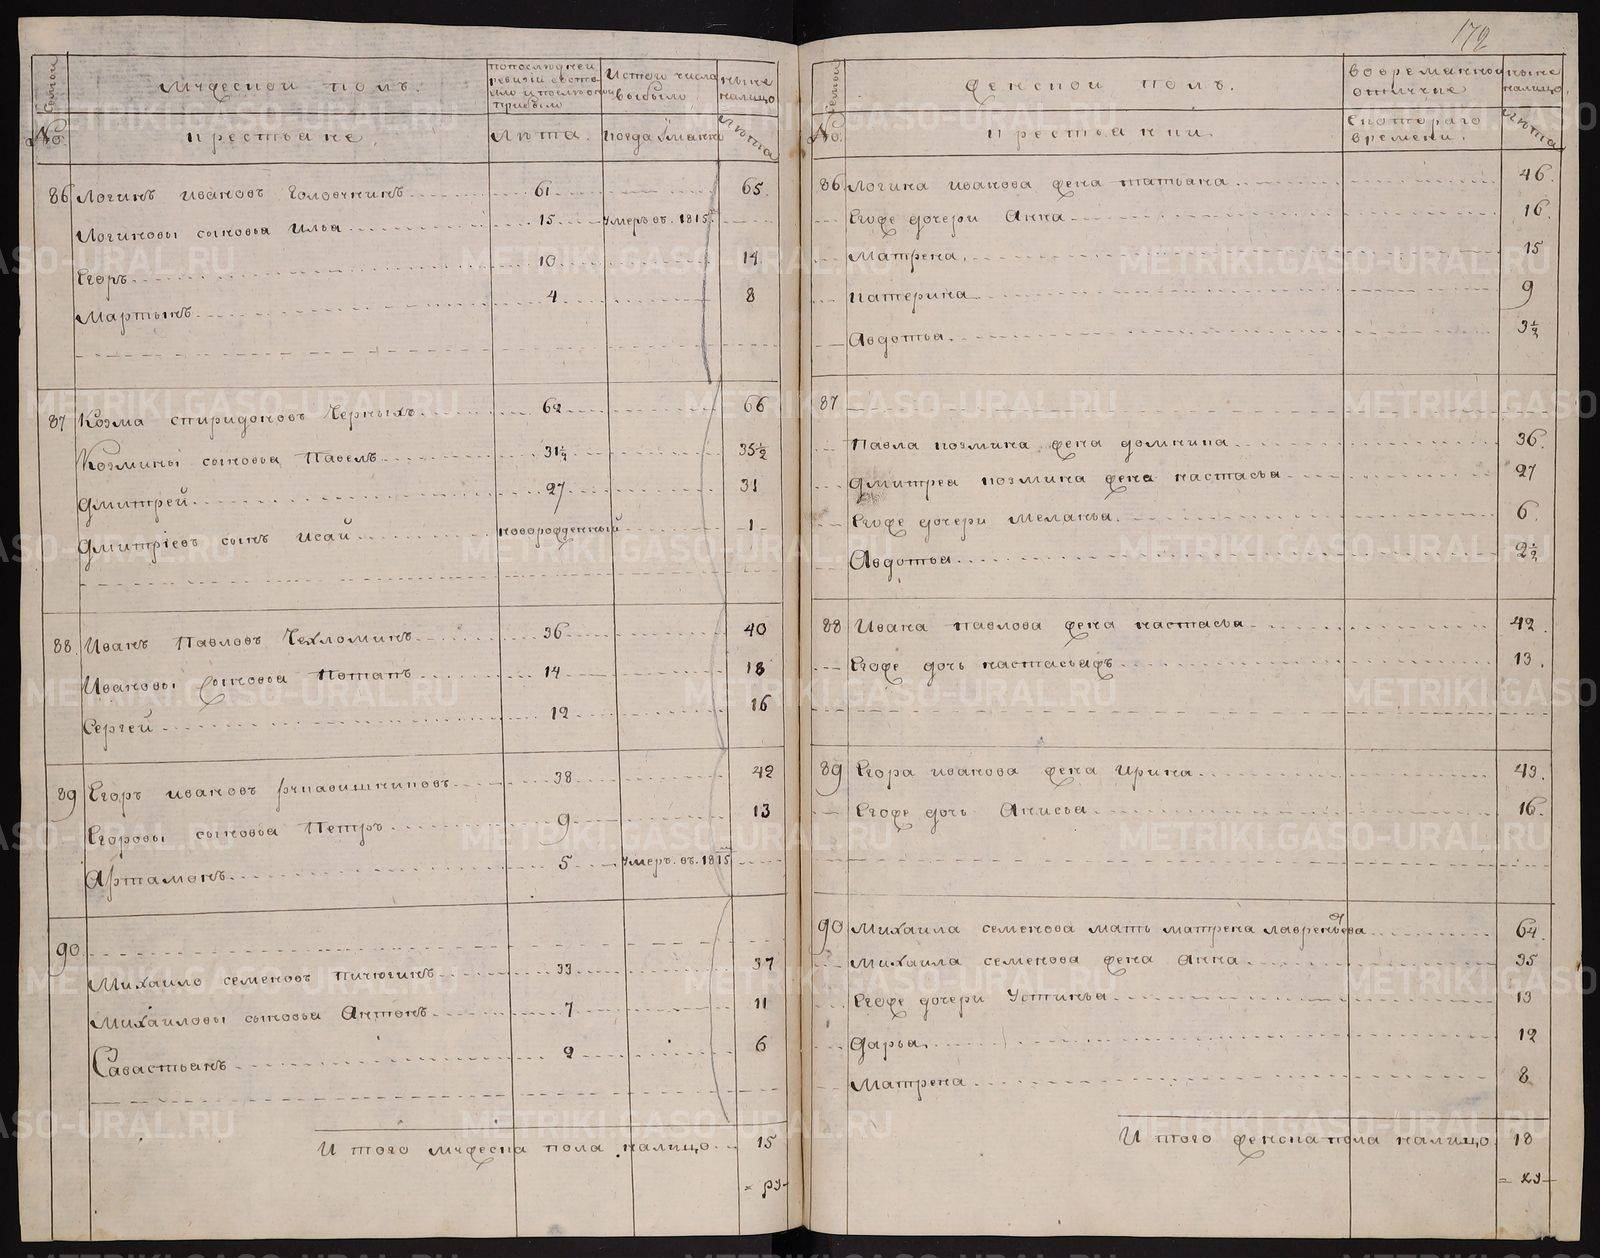 172
семьи
мужеской полъ.
попослѣдней ревизіи состояло и послѣ оной прибыло
Истого числа выбыло
ныне налицо
№.
крестьяне.
лѣта.
когда имянно
лѣта
86 Логинъ ивановъ Головчникъ 61 65
Логиновы сыновья Илья 15 умеръ въ. 1815.
Егоръ 10 14
Мартынъ 4 8
87 Козма спиридоновъ Черныхъ 62 66
Козмины сыновья Павелъ 31½ 35½
Дмитрей 27 31
Дмитріевъ сынъ Исай новорожденный 1
88. Иванъ Павловъ Чехломинъ 36 40
Ивановы сыновья Потапъ 14 18
Сергей 12 16
89 Егоръ ивановъ 38 42
Егоровы сыновья Петръ 9 13
Артамонъ 5 умеръ. въ. 1815
90.
Михаило семеновъ Пичюгинъ 33 37
Михаиловы сыновья Антонъ 7 11
Савастьянъ 2 6
И того мужеска пола налицо 15
семьи
женской полъ.
вовременной отлучке
ныне налицо.
№.
крестьянки
скотораго времени.
лѣта
86. Логина иванова жена татьяна 46.
Егоже дочери Анна 16.
Матрена 15
катерина 9
Авдотья 3½
87
Павла козмина жена домника 36.
Дмитрея козмина жена настасья 27
Егоже дочери Меланья 6.
Авдотья 2½
88 Ивана павлова жена настасья 42.
Егоже дочь настасьяжъ 13.
89 Егора иванова жена Ирина 43.
Егоже дочь Анисья 16.
90 Михаила семенова мать матрена лаврентьева 64.
Михаила семенова жена Анна 35
Егоже дочери Устинья 13
Дарья 12
Матрена 8
И того женска пола налицо. 18
METRIKI.GASO-URAL.RU